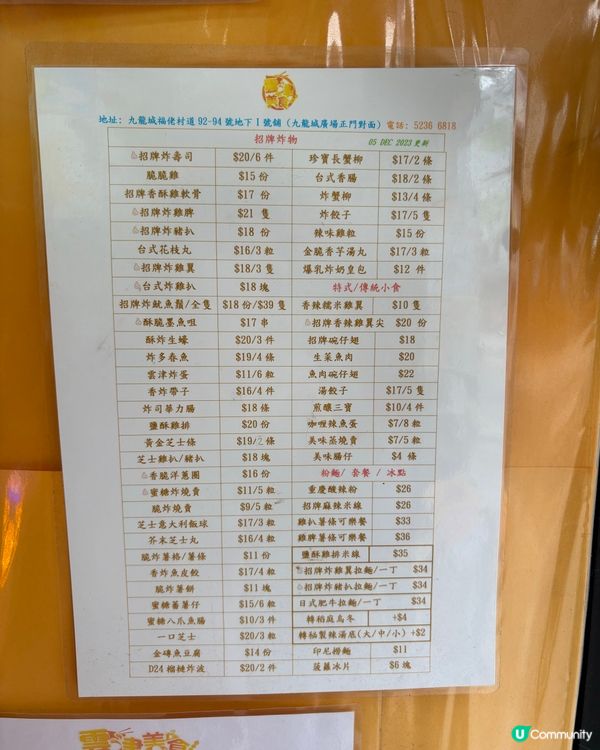 地址: 九龍城福佬村道 92-94 號地下 I 號舖 (九龍城廣場正門對面) 電話: 5236 6818
招牌炸物
05 DEC 2023 更新
招牌炸壽司 $20/6 件
脆脆雞 $15 份
招牌香酥雞軟骨 $17 份
招牌炸雞脾 $21 隻
招牌炸豬扒 $18 份
台式花枝丸 $16/3 粒
招牌炸雞翼 $18/3 隻
台式炸雞扒 $18 塊
招牌炸魷魚鬚/全隻 $18 份/$39 隻
酥脆墨魚咀 $17 串
酥炸生蠔 $20/3 件
炸多春魚 $19/4 條
雲津炸蛋 $11/6 粒
香炸帶子 $16/4 件
炸司華力腸 $18 條
鹽酥雞排 $20 份
黃金芝士條 $19/2 條
芝士雞扒/豬扒 $18 塊
香脆洋蔥圈 $16 份
蜜糖炸燒賣 $11/5 粒
脆炸燒賣 $9/5 粒
芝士意大利飯球 $17/3 粒
芥末芝士丸 $16/4 粒
脆炸薯格/薯條 $11 份
香炸魚皮餃 $17/4 粒
脆炸薯餅 $11 塊
蜜糖蕃薯仔 $15/6 粒
蜜糖八爪魚腸 $10/3 件
一口芝士 $20/3 粒
金磚魚豆腐 $14 份
D24 榴槤炸波 $20/2 件
珍寶長蟹柳 $17/2 條
台式香腸 $18/2 條
炸蟹柳 $13/4 條
炸餃子 $17/5 隻
辣味雞粒 $15 份
金脆香芋湯丸 $17/3 粒
爆乳炸奶皇包 $12 件
特式/傳統小食
香辣糯米雞翼 $10 隻
招牌香辣雞翼尖 $20 份
招牌碗仔翅 $18
生菜魚肉 $20
魚肉碗仔翅 $22
湯餃子 $17/5 隻
煎釀三寶 $10/4 件
咖喱辣魚蛋 $7/8 粒
美味蒸燒賣 $7/5 粒
美味腸仔 $4 條
粉麵/ 套餐 / 冰點
重慶酸辣粉 $26
招牌麻辣米線 $26
雞扒薯條可樂餐 $33
雞脾薯條可樂餐 $36
鹽酥雞排米線 $35
招牌炸雞翼拉麵/一丁 $34
招牌炸豬扒拉麵/一丁 $34
日式肥牛拉麵/一丁 $34
轉稻庭烏冬 +$4
轉秘製辣湯底(大/中/小) +$2
印尼撈麵 $11
菠蘿冰片 $6 塊
雲津美食
U Community